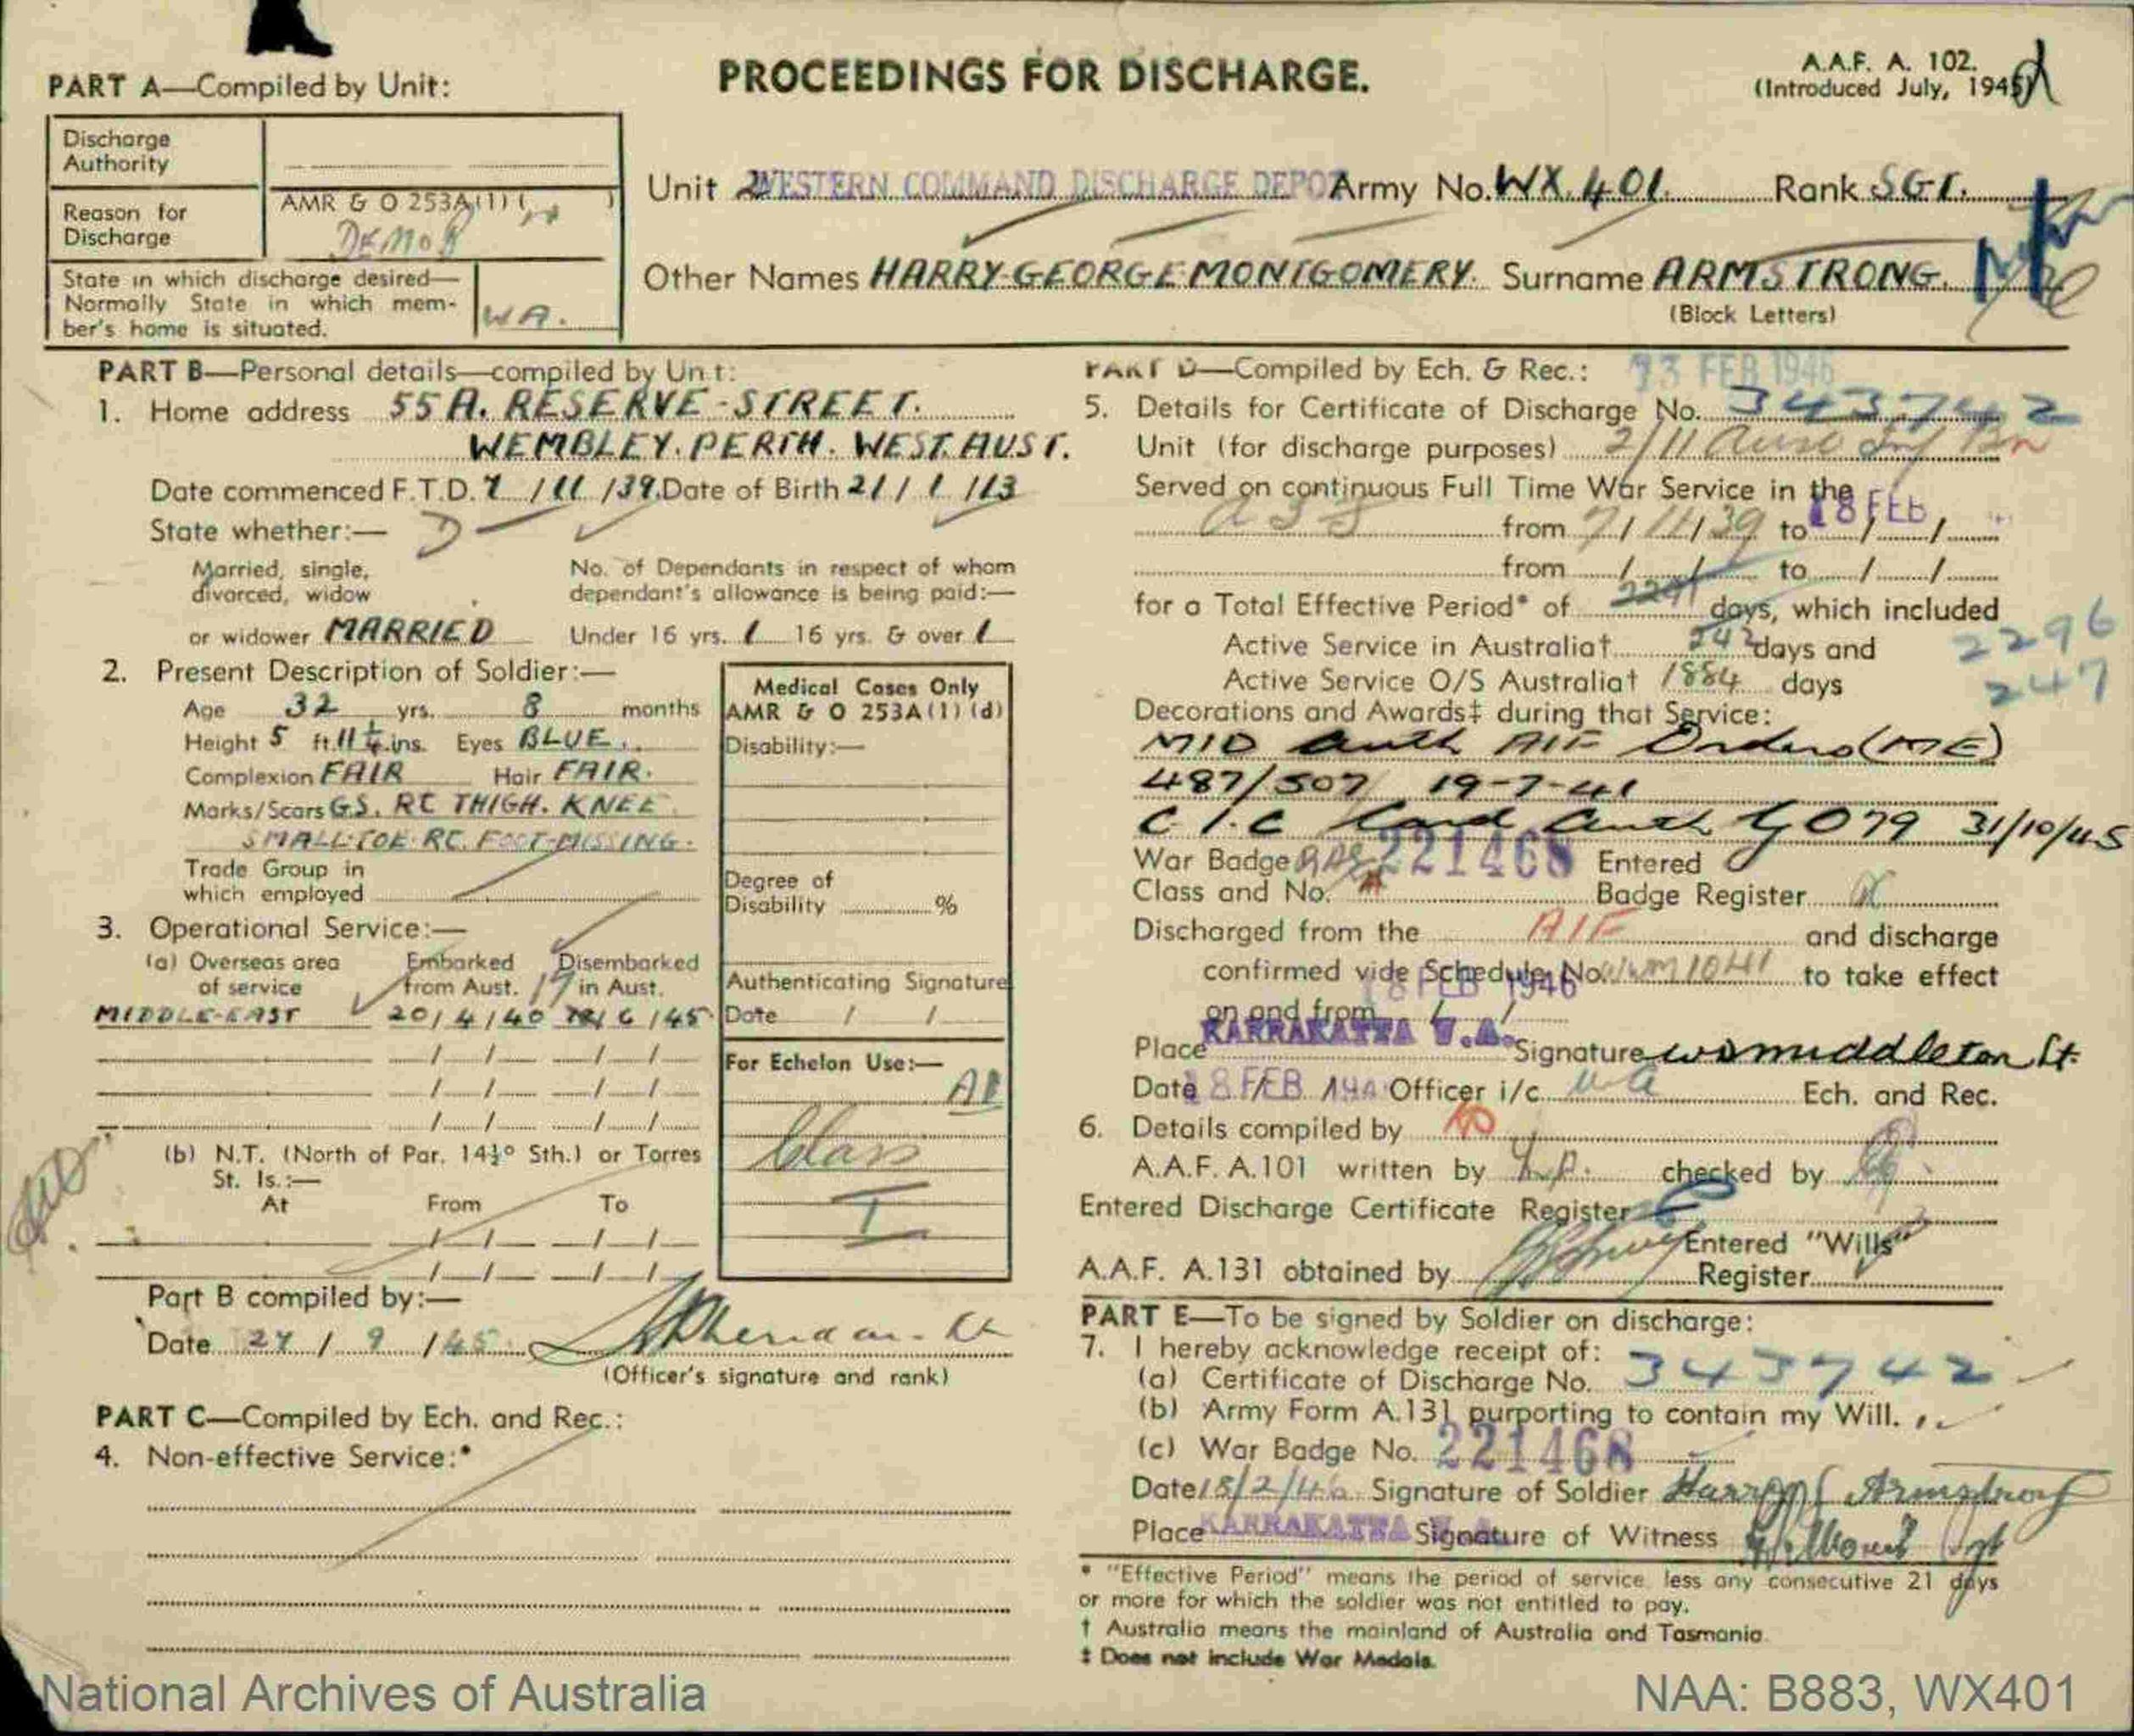 PROCEEDINGS FOR DISCHARGE.
A.A.F. A. 102.
(Introduced July, 1945)
PART A—Compiled by Unit:
Discharge Authority
Reason for Discharge AMR & O 253A(1)( )
DEMOB
State in which discharge desired—
Normally State in which mem-
ber's home is situated. WA.
Unit WESTERN COMMAND DISCHARGE DEPOT Army No. WX.401. Rank SGT.
Other Names HARRY GEORGE MONTGOMERY. Surname ARMSTRONG.
(Block Letters)
PART B—Personal details—compiled by Unit:
1. Home address 55A. RESERVE-STREET.
WEMBLEY. PERTH. WEST. AUST.
Date commenced F.T.D. 7/11/39. Date of Birth 21/1/13
State whether:—
Married, single,
divorced, widow
or widower MARRIED
No. of Dependants in respect of whom
dependant's allowance is being paid:—
Under 16 yrs. 1 16 yrs. & over 1
2. Present Description of Soldier:—
Age 32 yrs. 8 months
Height 5 ft. 11¼ ins. Eyes BLUE.
Complexion FAIR Hair FAIR.
Marks/Scars G.S. RT THIGH. KNEE
SMALL-TOE. RT. FOOT-MISSING.
Trade Group in
which employed
Medical Cases Only
AMR & O 253A(1)(d)
Disability:—
Degree of
Disability %
Authenticating Signature
Date / /
For Echelon Use:—
A1
Class
I
3. Operational Service:—
(a) Overseas area
of service
Embarked
from Aust.
Disembarked
in Aust.
MIDDLE-EAST 20/4/40 /6/45
(b) N.T. (North of Par. 14½° Sth.) or Torres
St. Is.:—
At From To
Part B compiled by:—
Date 27/9/45
(Officer's signature and rank)
PART C—Compiled by Ech. and Rec.:
4. Non-effective Service:*
PART D—Compiled by Ech. & Rec.: FEB 1946
5. Details for Certificate of Discharge No. 343742
Unit (for discharge purposes) 2/11 Aust Inf Bn
Served on continuous Full Time War Service in the
from 7/11/39 to 18 FEB
from / / to / /
for a Total Effective Period* of days, which included
2296
Active Service in Australia† days and
247
Active Service O/S Australia† 1884 days
Decorations and Awards‡ during that Service:
MID Auth AIF Orders (ME)
487/507 19-7-41
C.I.C Card Auth GO79 31/10/45
War Badge RAS 221468 Entered
Class and No. A Badge Register
Discharged from the AIF and discharge
confirmed vide Schedule No. WM1041 to take effect
on and from 18 FEB 1946
Place KARRAKATTA W.A. Signature Middleton Lt.
Date 18 FEB Officer i/c WA Ech. and Rec.
6. Details compiled by
A.A.F. A.101 written by checked by
Entered Discharge Certificate Register
A.A.F. A.131 obtained by Entered "Wills"
Register
PART E—To be signed by Soldier on discharge:
7. I hereby acknowledge receipt of:
(a) Certificate of Discharge No. 343742
(b) Army Form A.131 purporting to contain my Will.
(c) War Badge No. 221468
Date 18/2/46 Signature of Soldier Harry Armstrong
Place KARRAKATTA Signature of Witness Sgt
* "Effective Period" means the period of service less any consecutive 21 days
or more for which the soldier was not entitled to pay.
† Australia means the mainland of Australia and Tasmania.
‡ Does not include War Medals.
National Archives of Australia
NAA: B883, WX401